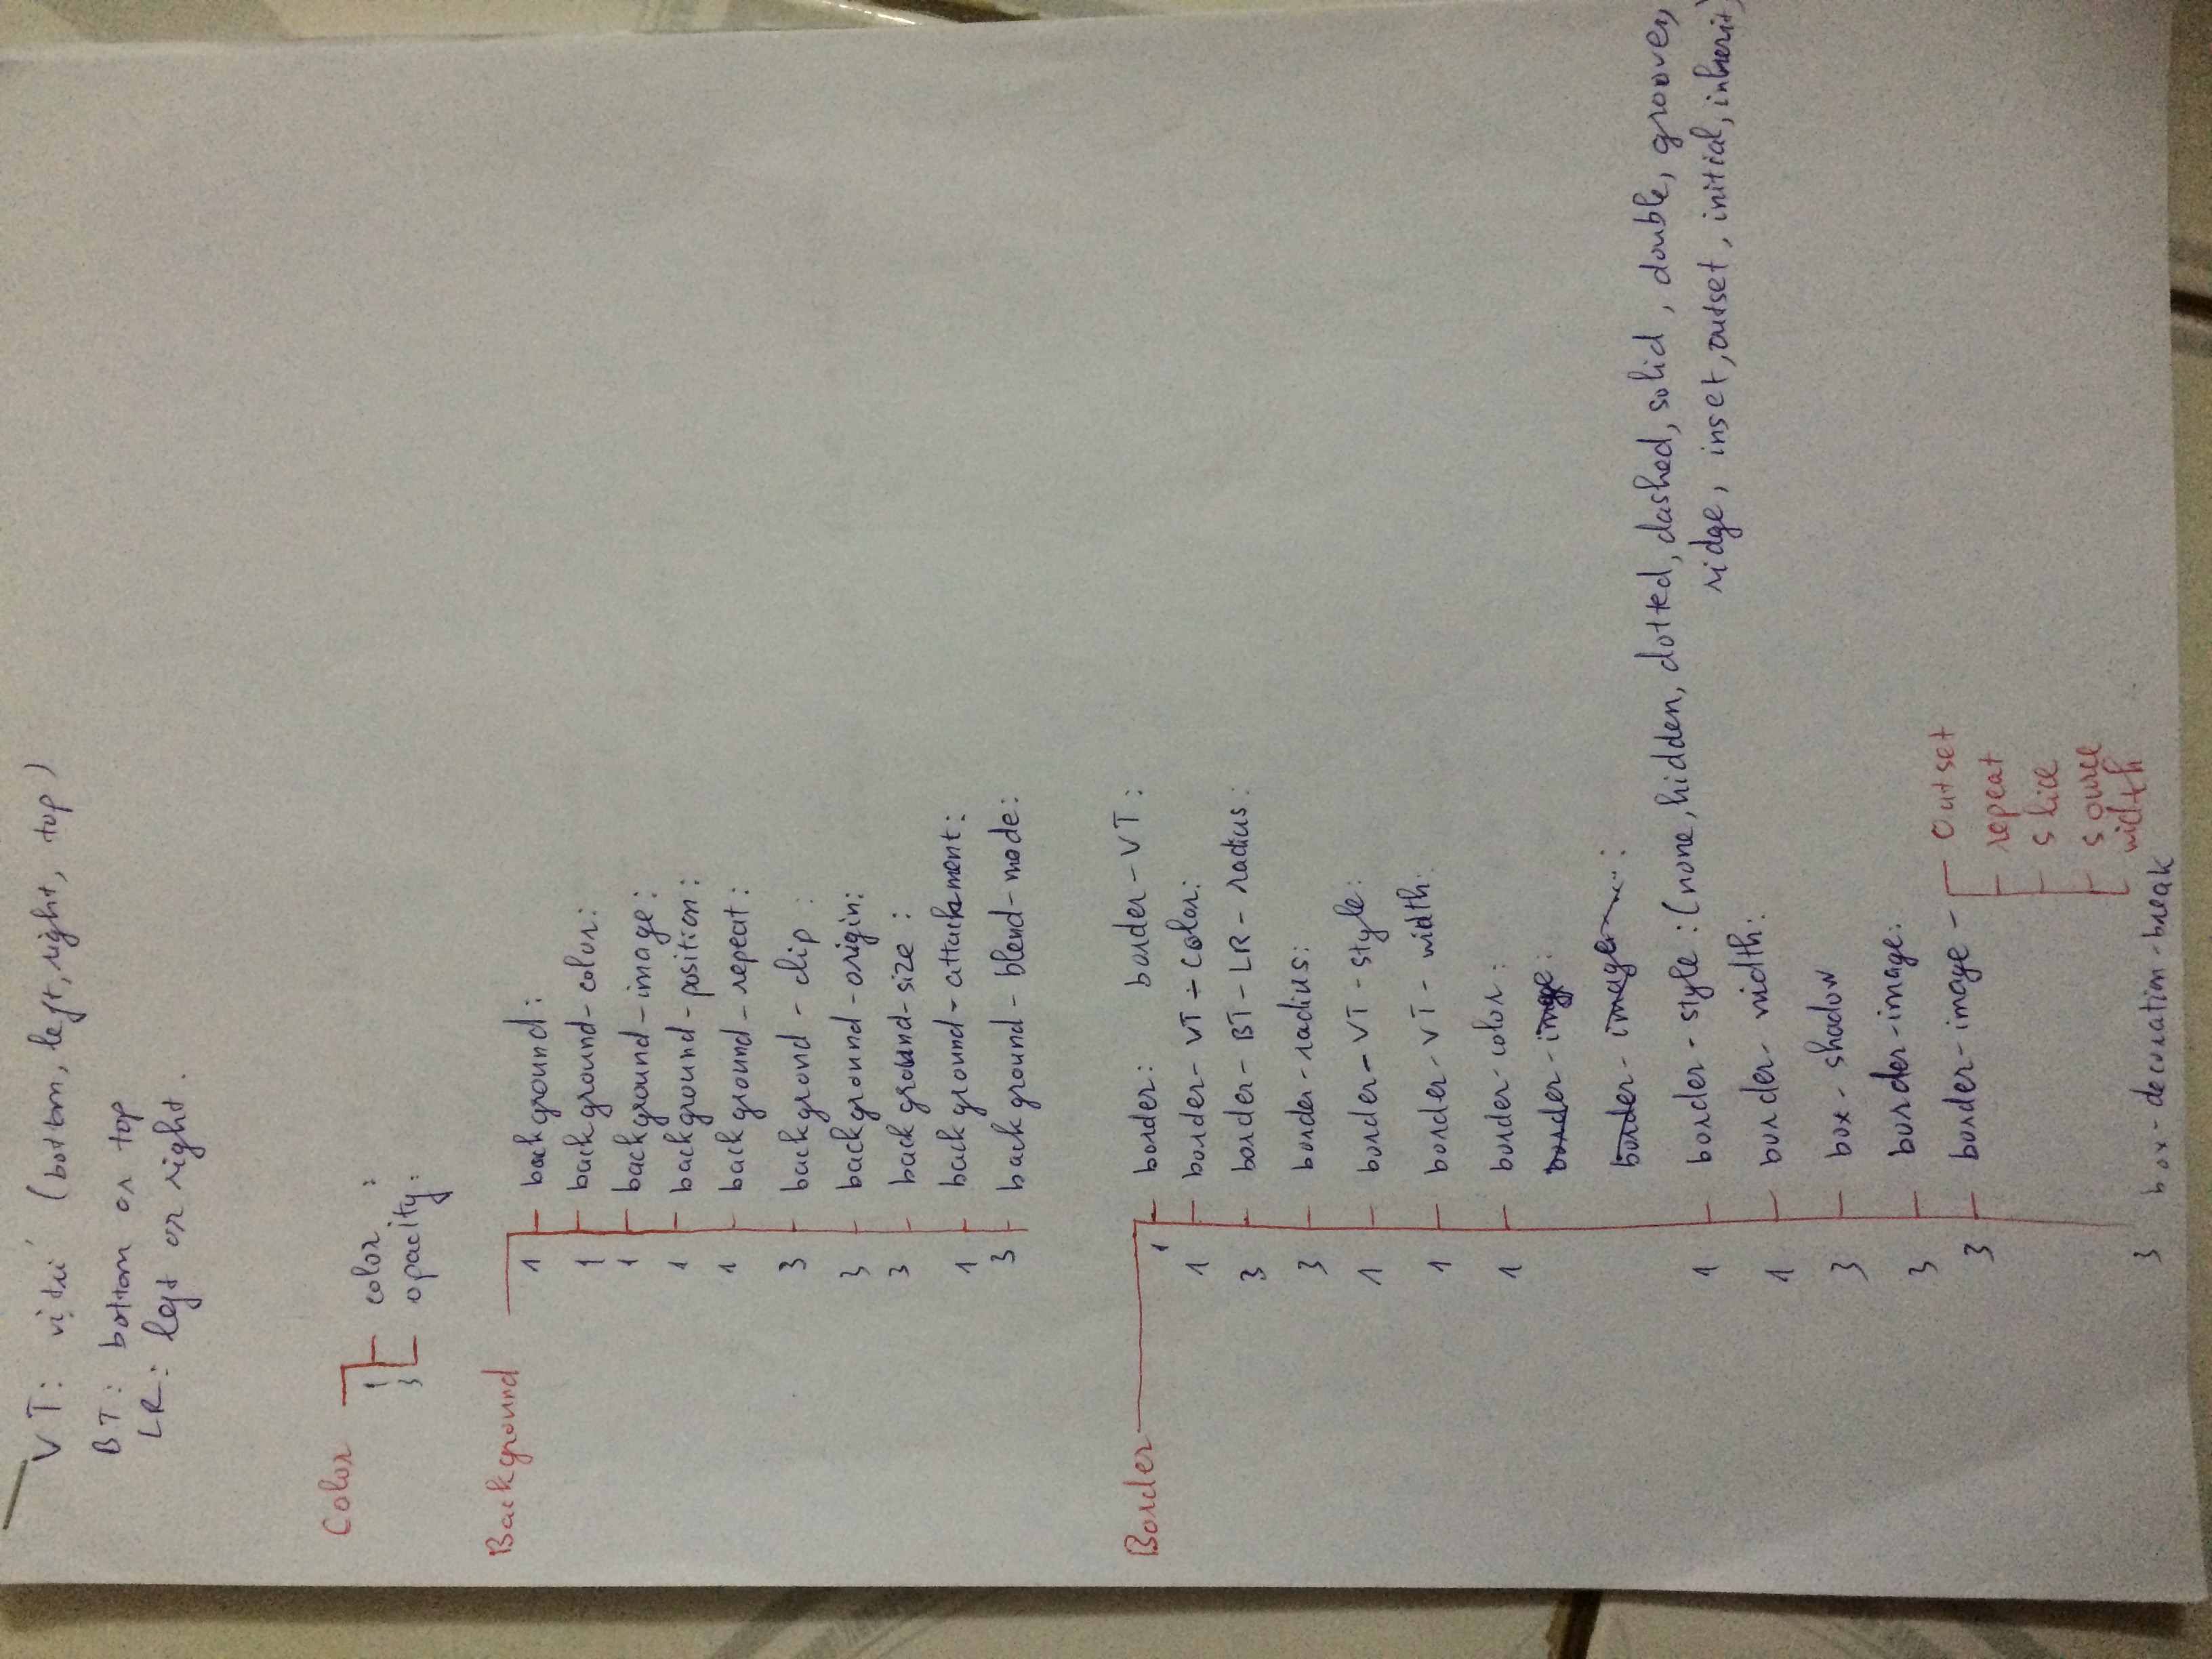 VT: vị trí (bottom, left, right, top)
BT: bottom or top
LR: left or right.
Color
1 color :
3 opacity:
Background
1 background:
1 background-color:
1 background-image:
1 background-position:
1 background-repeat:
3 backgrond-clip :
3 background-origin:
3 background-size :
1 background-attachment:
3 background-blend-mode:
Border
1 border: border-VT:
1 border-VT-color:
3 border-BT-LR-radius:
3 border-radius:
1 border-VT-style:
1 border-VT-width:
1 border-color:
border-image:
border-image-...:
1 border-style:(none, hidden, dotted, dashed, solid, double, groove,
ridge, inset, outset, initial, inherit)
1 border-width:
3 box-shadow
3 border-image:
3 border-image- outset
repeat
slice
source
width
3 box-decoration-break